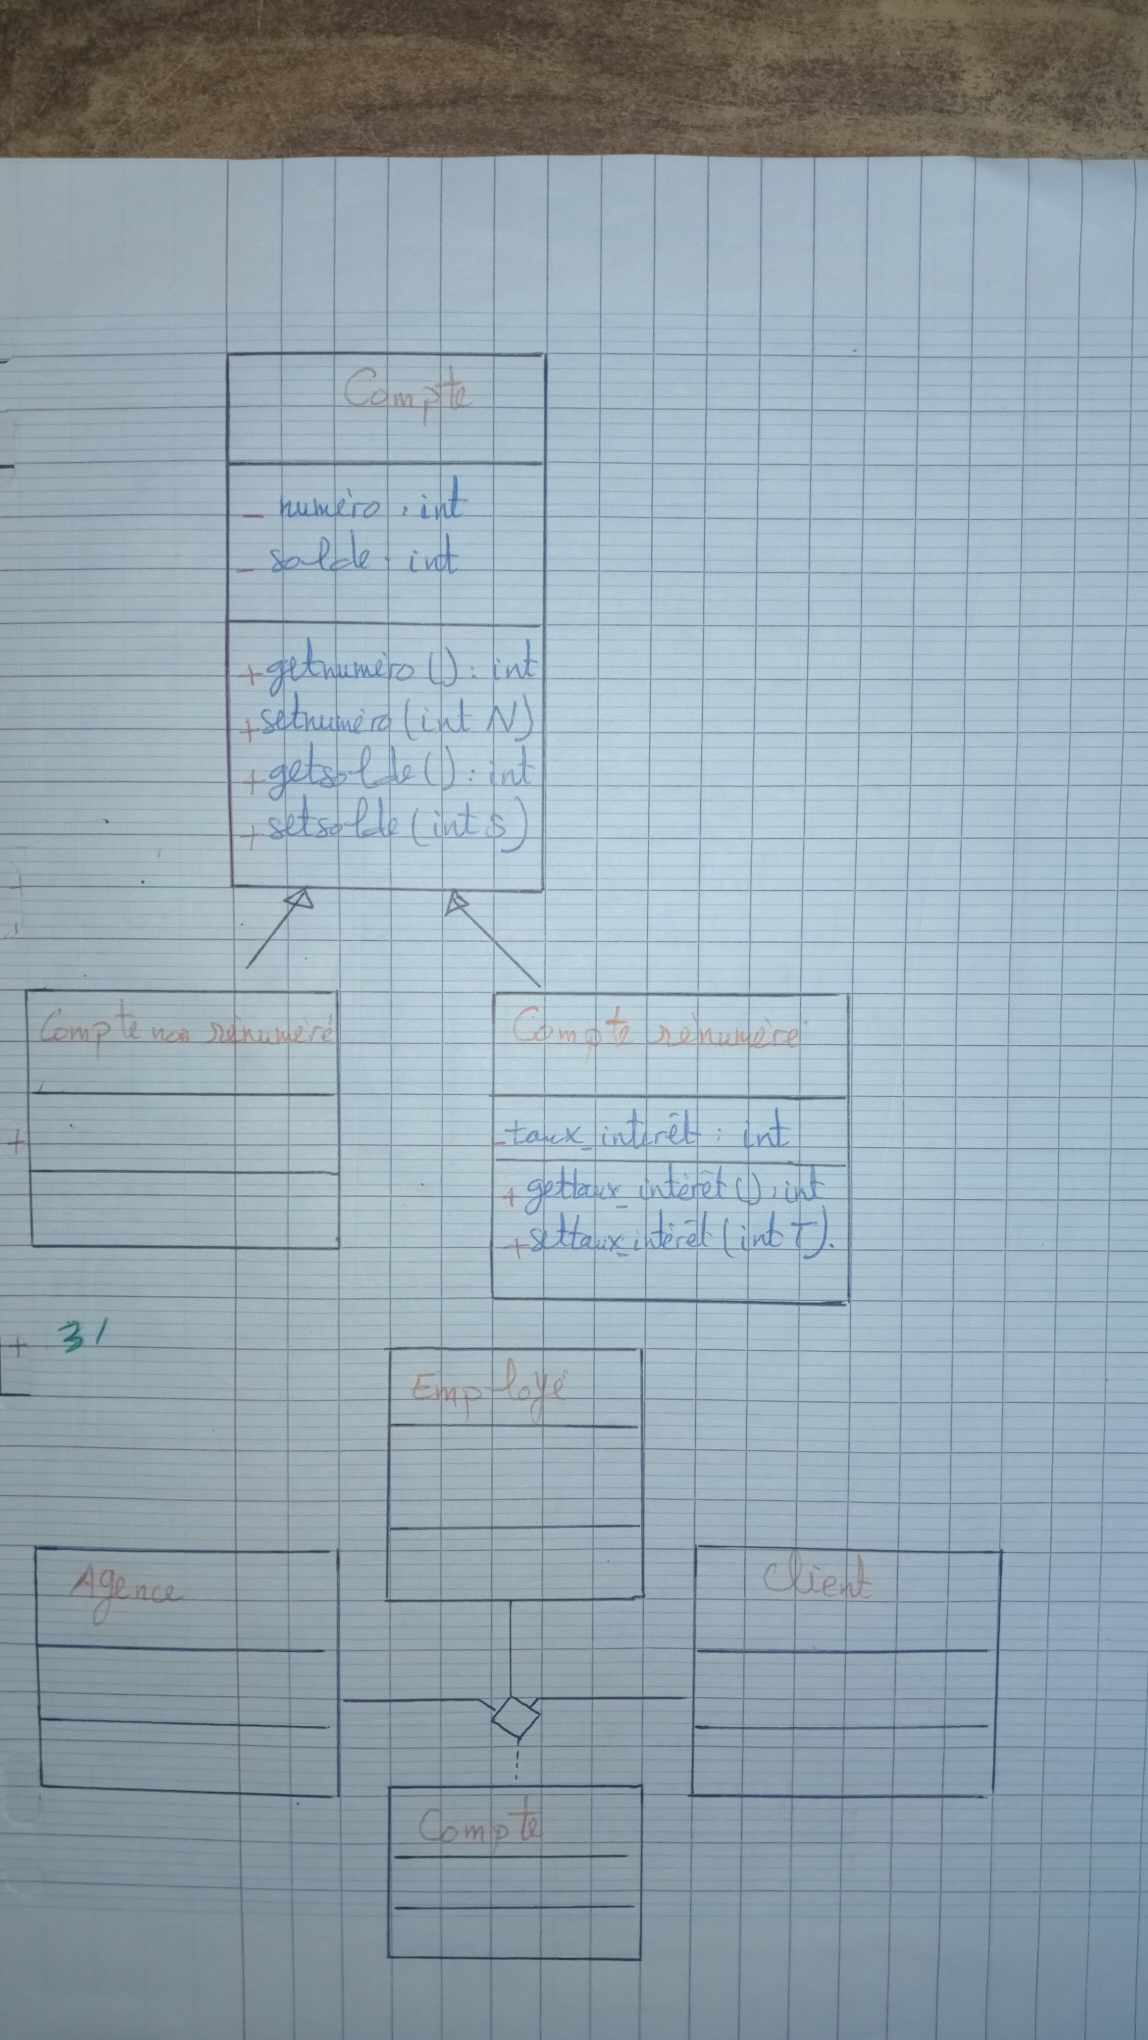 Compte
- numéro : int
- solde : int
+ getnuméro () : int
+ setnuméro (int N)
+ getsolde () : int
+ setsolde (int S)
Compte non rénuméré
Compte rénuméré
- taux_intérêt : int
+ gettaux_intérêt () : int
+ settaux_intérêt (int T).
3/
Employé
Agence
Client
Compte